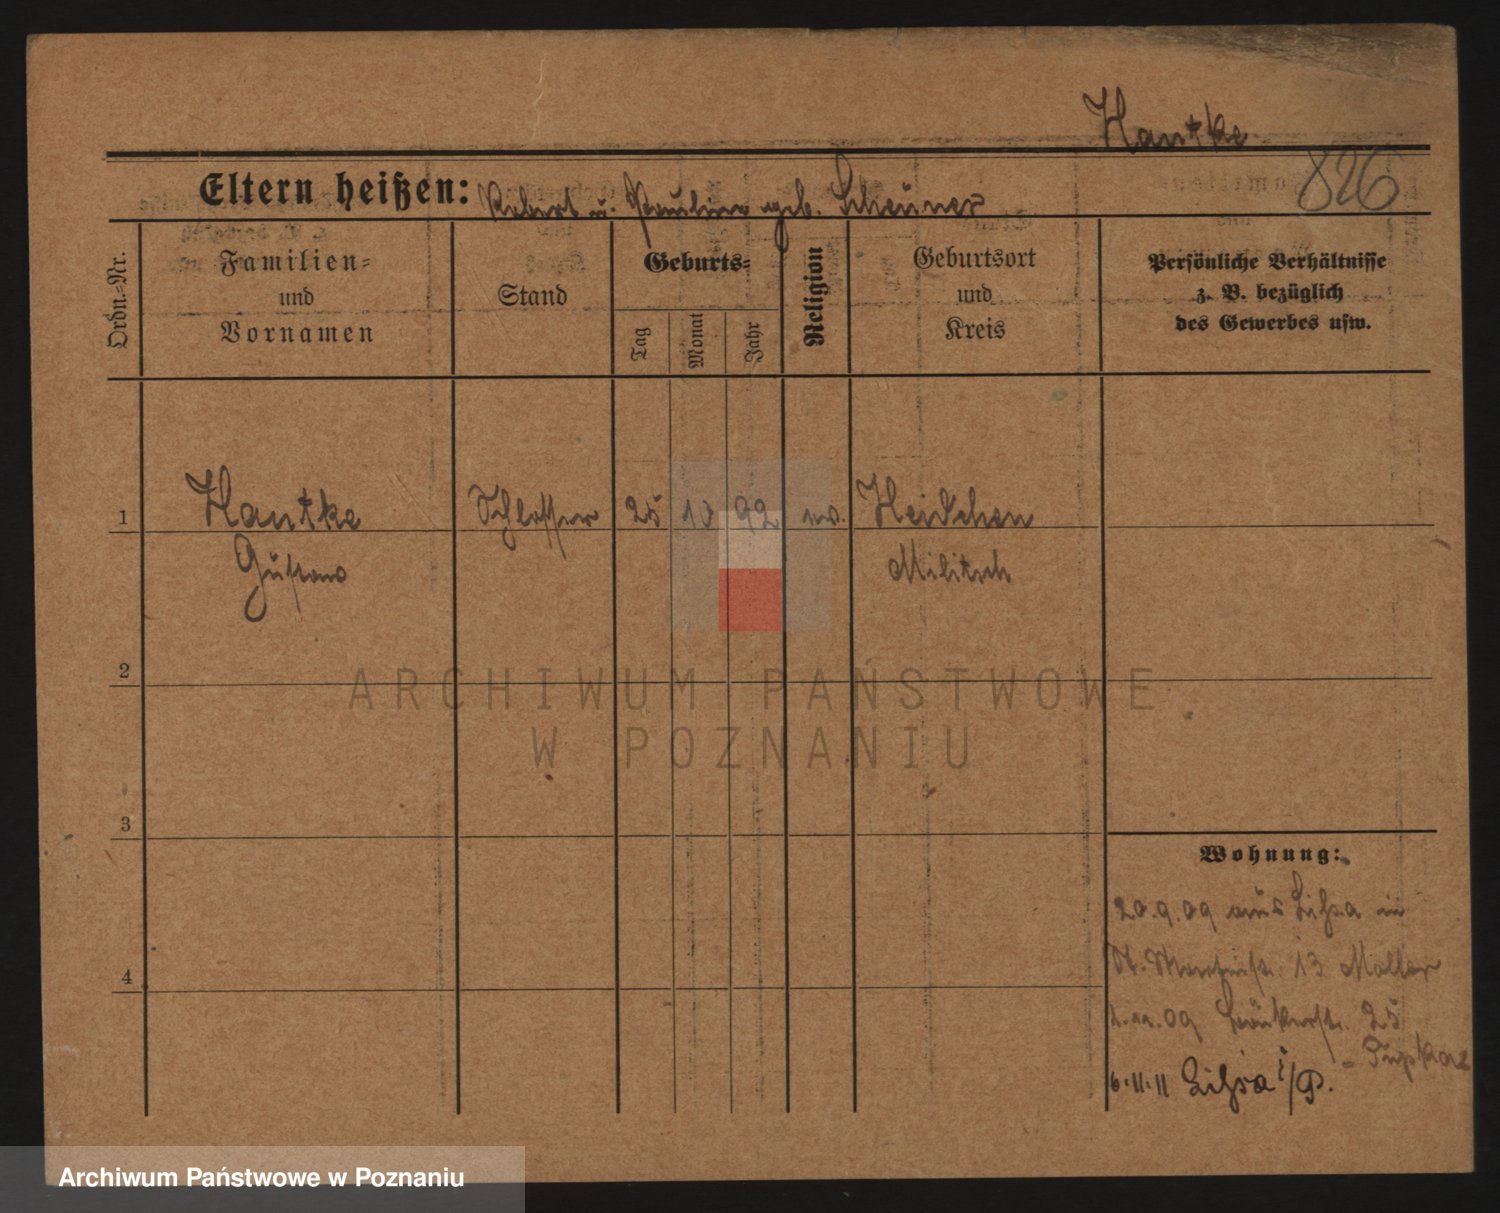 Hantke
Eltern heißen: Robert u. Pauline geb. Scheuner
826
Ordn.-Nr.
Familien-
und
Vornamen
Stand
Geburts-
Tag
Monat
Jahr
Religion
Geburtsort
und
Kreis
Persönliche Verhältnisse
z. B. bezüglich
des Gewerbes usw.
1
Hantke
Gustav
Schlosser
25
10
92
ev.
Heidchen
Militsch
2
ARCHIWUM PAŃSTWOWE
W POZNANIU
3
4
Wohnung:
20.9.09 aus Lissa in
St. Martinstr. 13
09 25
6.11.11 Lissa i/P.
Archiwum Państwowe w Poznaniu